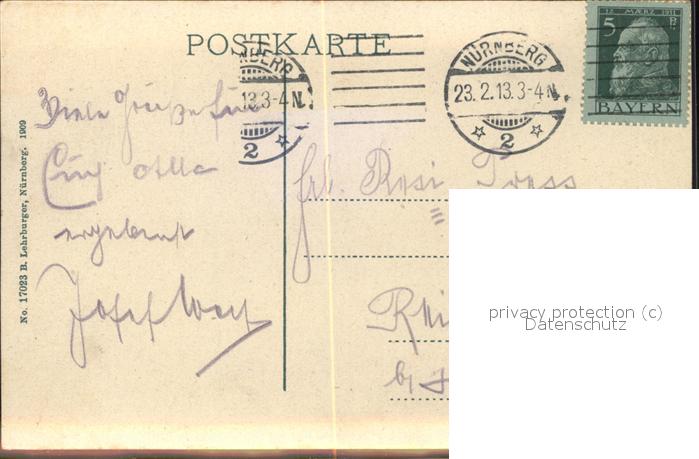 12. MÆRZ 1911
5 Pf.
BAYERN
POSTKARTE
NÜRNBERG
23.2.13.3-4N.
2
NBERG
.13.3-4N.
2
Viele Grüße für
Euch alle
ergebenst
Josef
Frl. Rosi
No. 17023 B. Lehrburger, Nürnberg. 1909
privacy protection (c)
Datenschutz